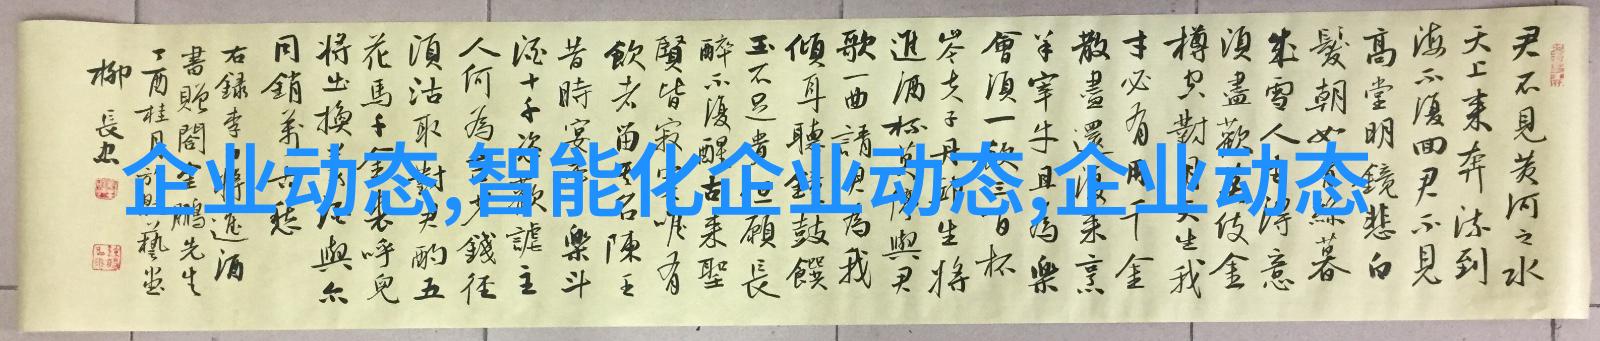 君不見黄河之水
天上来奔流到
海不復回君不見
高堂明鏡悲白
髮朝如青絲暮
成雪人生得意
須盡歡莫使金
樽空對月天生我
才必有用千金
散盡還復来烹
羊宰牛且為樂
會須一飲三百杯
岑夫子丹邱生將
進酒杯莫停與君
歌一曲請君為我
傾耳聽鐘鼓饌
玉不足貴但願長
醉不復醒古来聖
賢皆寂寞唯有
飲者留其名陳王
昔時宴平樂斗
酒十千恣歡謔主
人何為言少錢径
須沽取對君酌五
花馬千金裘呼兒
將出換美酒與尔
同銷萬古愁
右録李白將進酒
書贈閣金鵬先生
丁酉桂月方藝堂
柳長忠
企业动态,智能化企业动态,企业动态